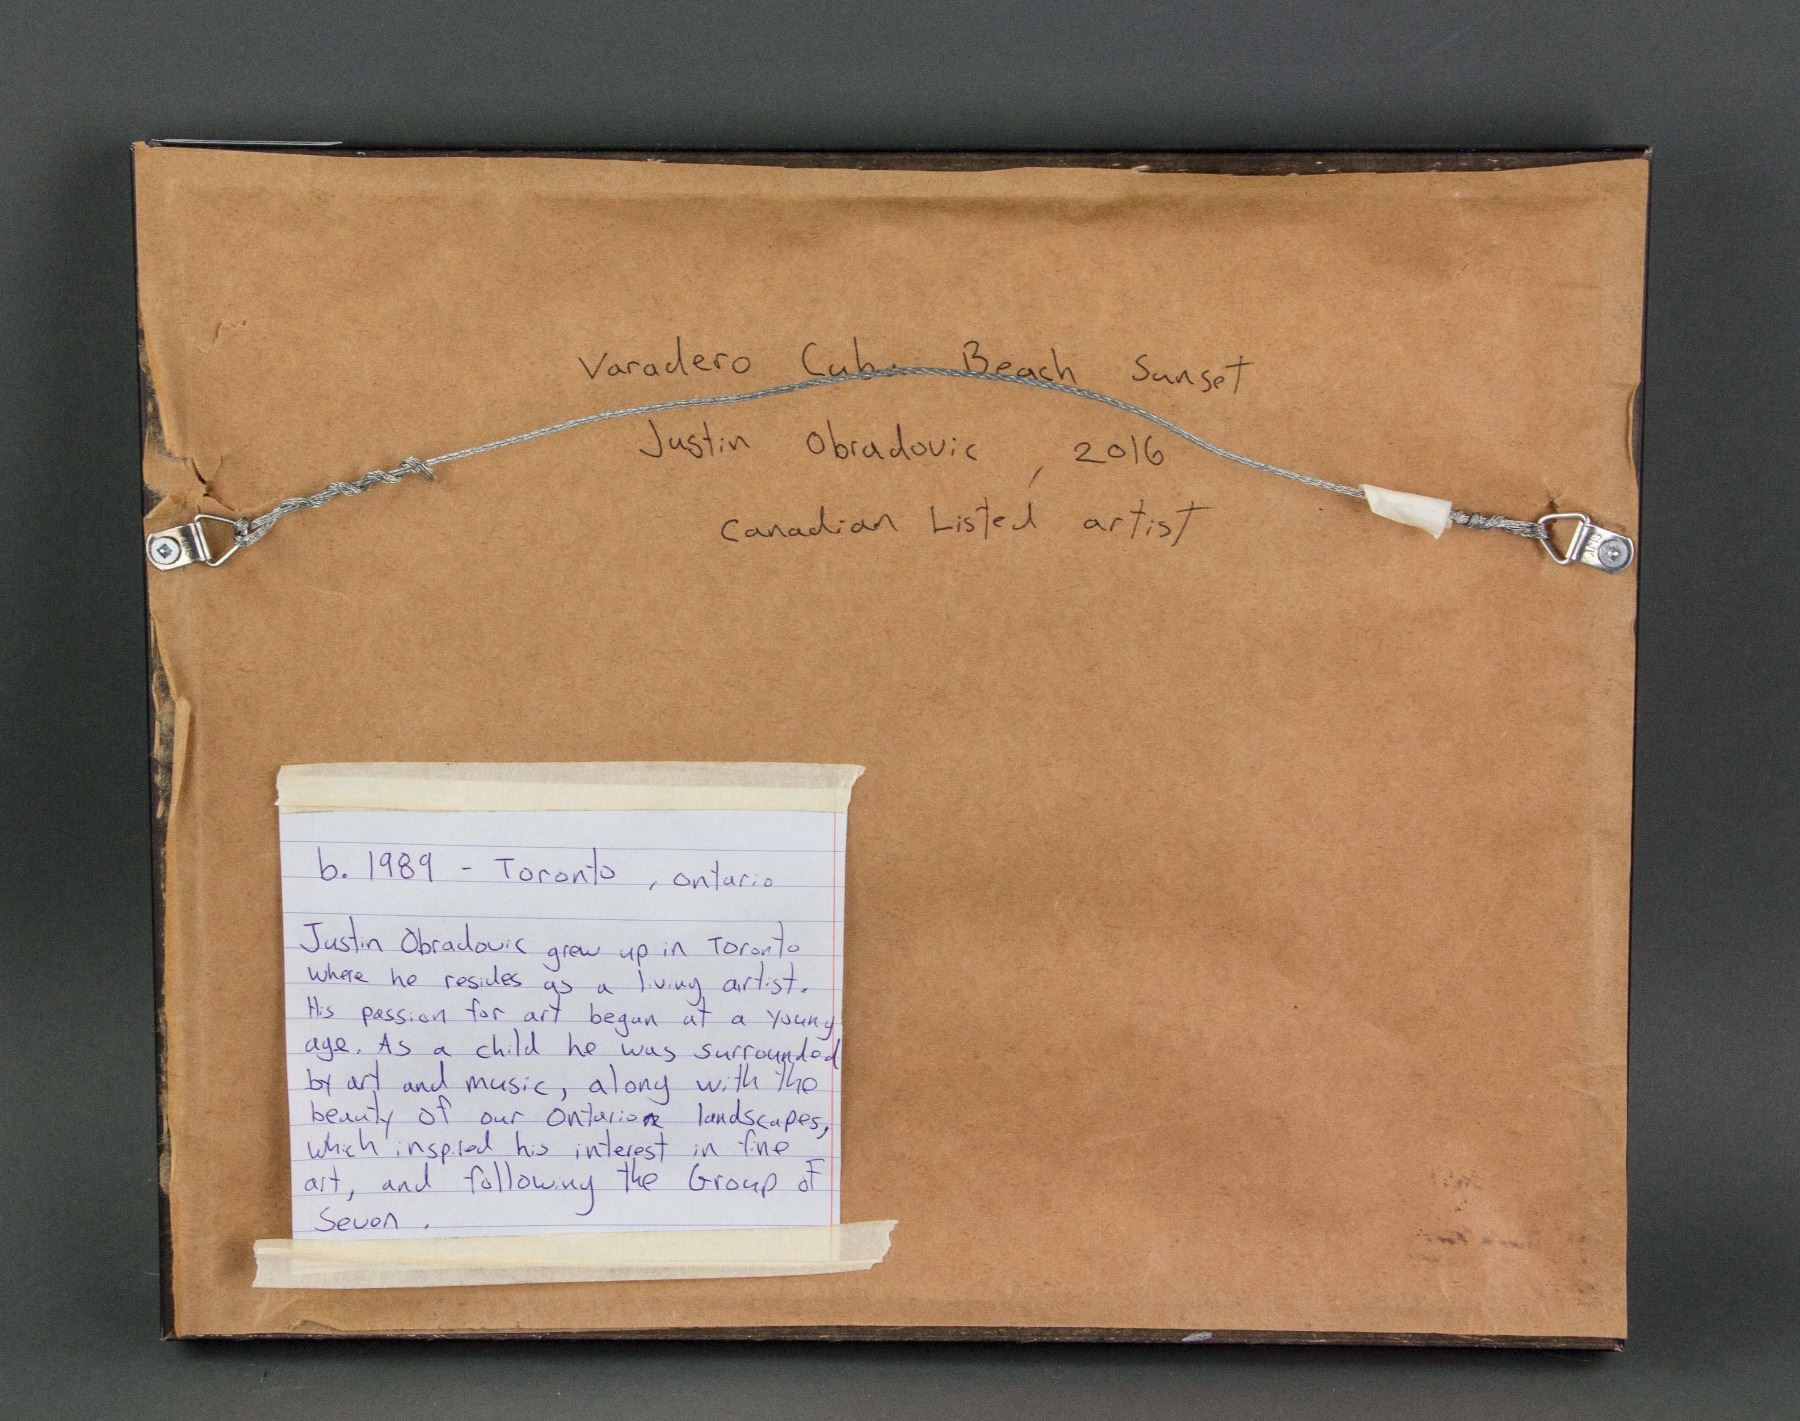 Varadero Cuba Beach Sunset
Justin Obradovic, 2016
Canadian Listed artist
b. 1989 - Toronto, Ontario
Justin Obradovic grew up in Toronto
where he resides as a living artist.
His passion for art began at a young
age. As a child he was surrounded
by art and music, along with the
beauty of our Ontarion landscapes,
which inspired his interest in fine
art, and following the Group of
Seven.